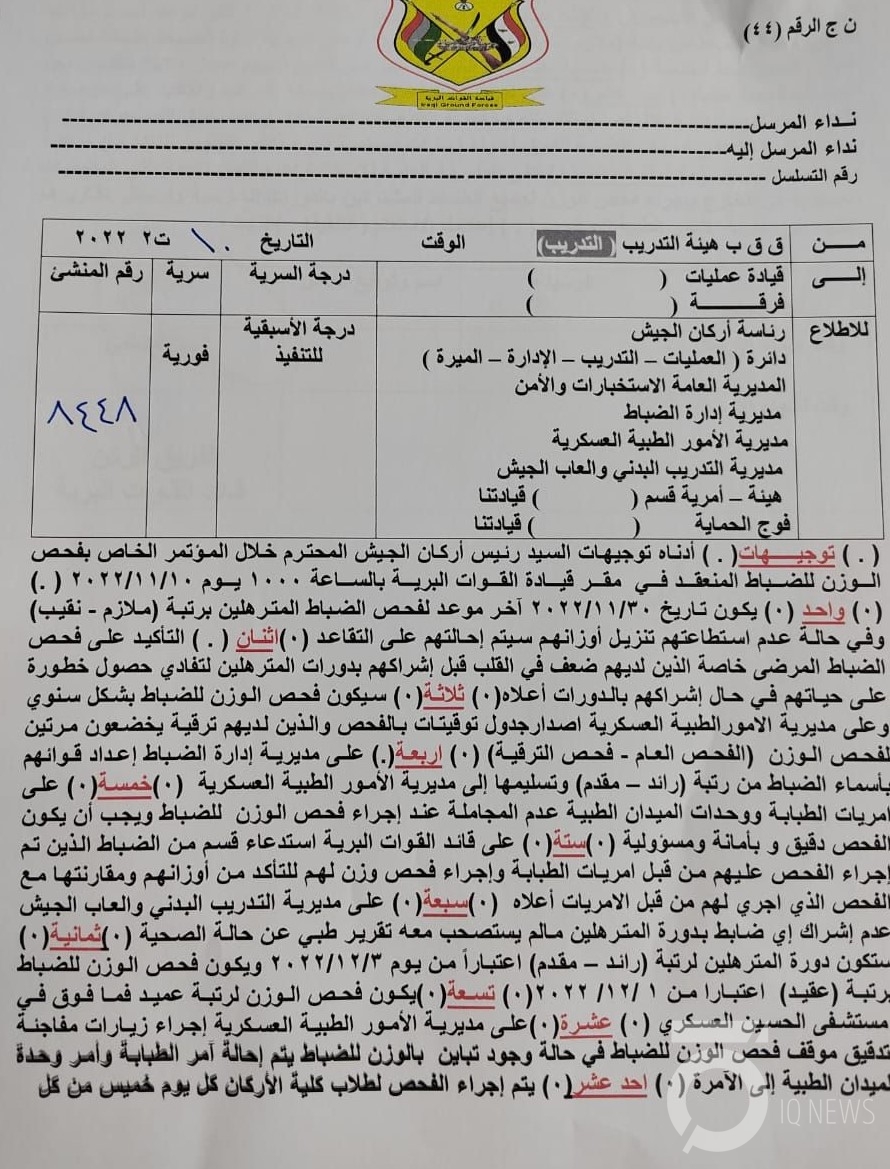 ن ج الرقم (٤٤)
قيادة القوات البرية
Iraqi Ground Forces
نـداء المرسل
نداء المرسل إليه
رقم التسلسل
مـــن ق ق ب هيئة التدريب ( التدريب) الوقت التاريخ ١٠ ت٢ ٢٠٢٢
إلـــى قيادة عمليات ( ) درجة السرية سرية رقم المنشئ
فرقـــــة ( )
للاطلاع رئاسة أركان الجيش درجة الأسبقية للتنفيذ فورية ٨٤٤٨
دائرة ( العمليات – التدريب – الإدارة – الميرة )
المديرية العامة الاستخبارات والأمن
مديرية إدارة الضباط
مديرية الأمور الطبية العسكرية
مديرية التدريب البدني والعاب الجيش
هيئة – أمرية قسم ( ) قيادتنا
فوج الحماية ( ) قيادتنا
( . ) توجيـــهات( . ) أدناه توجيهات السيد رئيس أركان الجيش المحترم خلال المؤتمر الخاص بفحص
الـوزن للضباط المنعقد في مقر قيادة القوات البرية بالساعة ١٠٠٠ يـوم ٢٠٢٢/١١/١٠ ( . )
(٠) واحد (٠) يكون تاريخ ٢٠٢٢/١١/٣٠ آخر موعد لفحص الضباط المترهلين برتبة (ملازم - نقيب)
وفي حالة عدم استطاعتهم تنزيل أوزانهم سيتم إحالتهم على التقاعد (٠)اثنان ( . ) التأكيد على فحص
الضباط المرضى خاصة الذين لديهم ضعف في القلب قبل إشراكهم بدورات المترهلين لتفادي حصول خطورة
على حياتهم في حال إشراكهم بالدورات أعلاه(٠) ثلاثة(٠) سيكون فحص الوزن للضباط بشكل سنوي
وعلى مديرية الامورالطبية العسكرية اصدارجدول توقيتات بالفحص والذين لديهم ترقية يخضعون مرتين
لفحص الوزن (الفحص العام - فحص الترقية) (٠) اربعة(.) على مديرية إدارة الضباط إعداد قوائهم
بأسماء الضباط من رتبة (رائد – مقدم) وتسليمها إلى مديرية الأمور الطبية العسكرية (٠)خمسة(٠) على
امريات الطبابة ووحدات الميدان الطبية عدم المجاملة عند إجراء فحص الوزن للضباط ويجب أن يكون
الفحص دقيق و بأمانة ومسؤولية (٠)ستة(٠) على قائد القوات البرية استدعاء قسم من الضباط الذين تم
إجراء الفحص عليهم من قبل امريات الطبابة وإجراء فحص وزن لهم للتأكد من أوزانهم ومقارنتها مع
الفحص الذي اجري لهم من قبل الامريات أعلاه (٠)سبعة(٠) على مديرية التدريب البدني والعاب الجيش
عدم إشراك إي ضابط بدورة المترهلين مالم يستصحب معه تقرير طبي عن حالة الصحية (٠)ثمانية(٠)
ستكون دورة المترهلين لرتبة (رائد – مقدم) اعتباراً من يوم ٢٠٢٢/١٢/٣ ويكون فحص الوزن للضباط
برتبة (عقيد) اعتبارا من ١ /١٢/ ٢٠٢٢(٠) تسعة(٠)يكون فحص الوزن لرتبة عميد فما فوق في
مستشفى الحسين العسكري (٠) عشرة(٠)على مديرية الأمور الطبية العسكرية إجراء زيارات مفاجئة
تدقيق موقف فحص الوزن للضباط في حالة وجود تباين بالوزن للضباط يتم إحالة آمر الطبابة وأمر وحدة
لميدان الطبية إلى الآمرة (٠) احد عشر(٠) يتم إجراء الفحص لطلاب كلية الأركان كل يوم خميس من كل
IQ NEWS